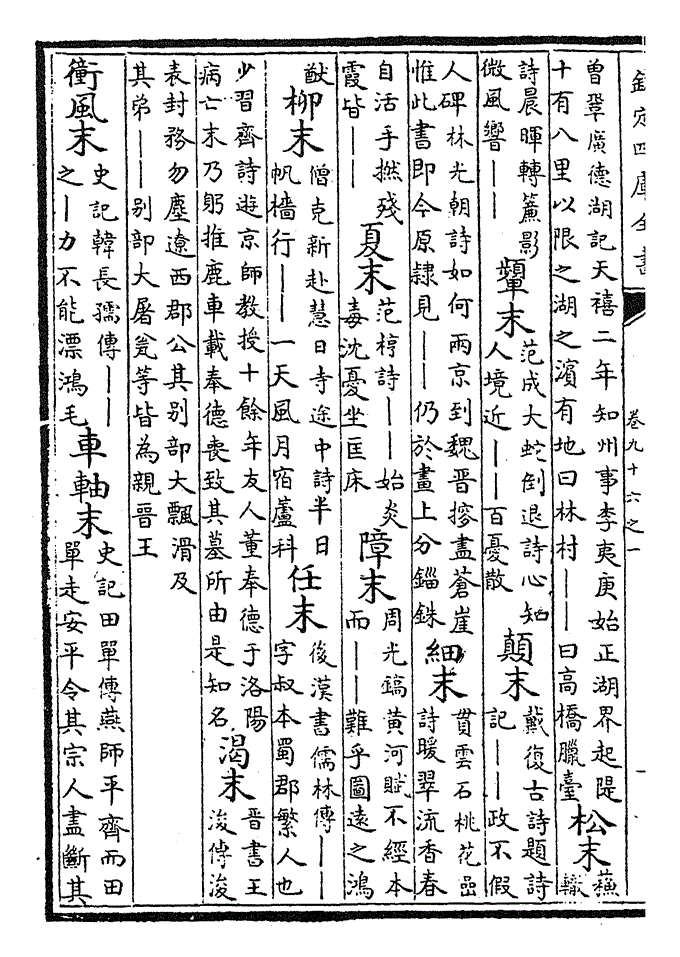 欽定四庫全書 卷九十六之一
曾鞏廣德湖記天禧二年知州事李夷庚始正湖界起隄十有八里以限之湖之濱有地曰林村——曰高橋臘臺 松末 蘇轍
詩晨暉轉簾影微風響—— 顰末 范成大蛇倒退詩心知人境近——百憂散 顛末 戴復古詩題詩記——政不假
人碑林光朝詩如何兩京到魏晉摎盡蒼崖惟此書即今原隸見——仍於畫上分錙銖 細末 貫雲石桃花喦詩暖翠流香春
自活手撚殘霞皆—— 夏末 范梈詩——始炎毒沈憂坐匡床 障末 周光鎬黃河賦不經本而——難乎圖遠之鴻
猷 柳末 僧克新赴慧日寺途中詩半日帆檣行——一天風月宿蘆科 任末 後漢書儒林傳——字叔本蜀郡繁人也
少習齊詩遊京師教授十餘年友人董奉德于洛陽病亡末乃躬推鹿車載奉德喪致其墓所由是知名 渴末 晉書王浚傳浚
表封務勿塵遼西郡公其别部大飄滑及其弟——别部大屠瓮等皆為親晉王
衝風末 史記韓長孺傳——之—力不能漂鴻毛 車軸末 史記田單傳燕師平齊而田單走安平令其宗人盡斷其